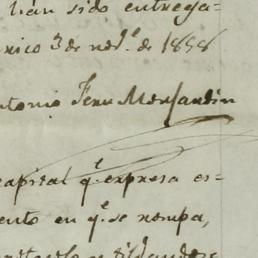 han sido entrega-
nico 3 de nov.e de 1858
ntonio Feru Monjardin
capital q.e expresa es-
ento en q.e se rompa,